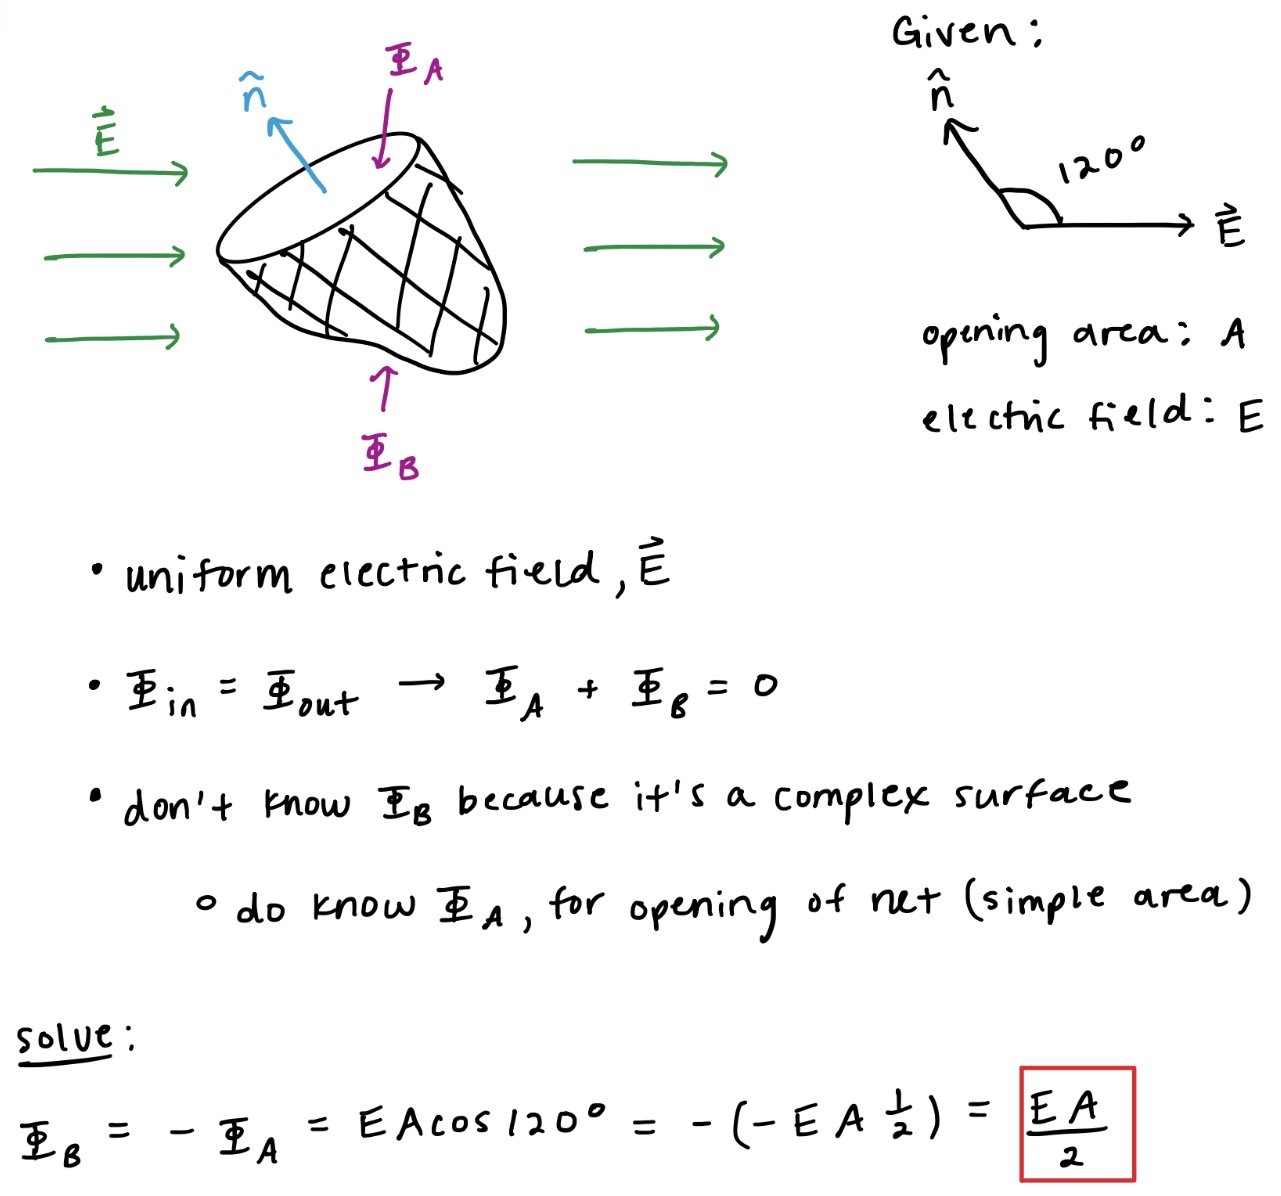 Given:
Φ_A
n̂
E⃗
n̂
120°
E⃗
opening area: A
electric field: E
Φ_B
• uniform electric field, E⃗
• Φ_in = Φ_out → Φ_A + Φ_B = 0
• don't know Φ_B because it's a complex surface
◦ do know Φ_A, for opening of net (simple area)
solve:
Φ_B = - Φ_A = EAcos120° = -(-EA 1/2) = EA/2